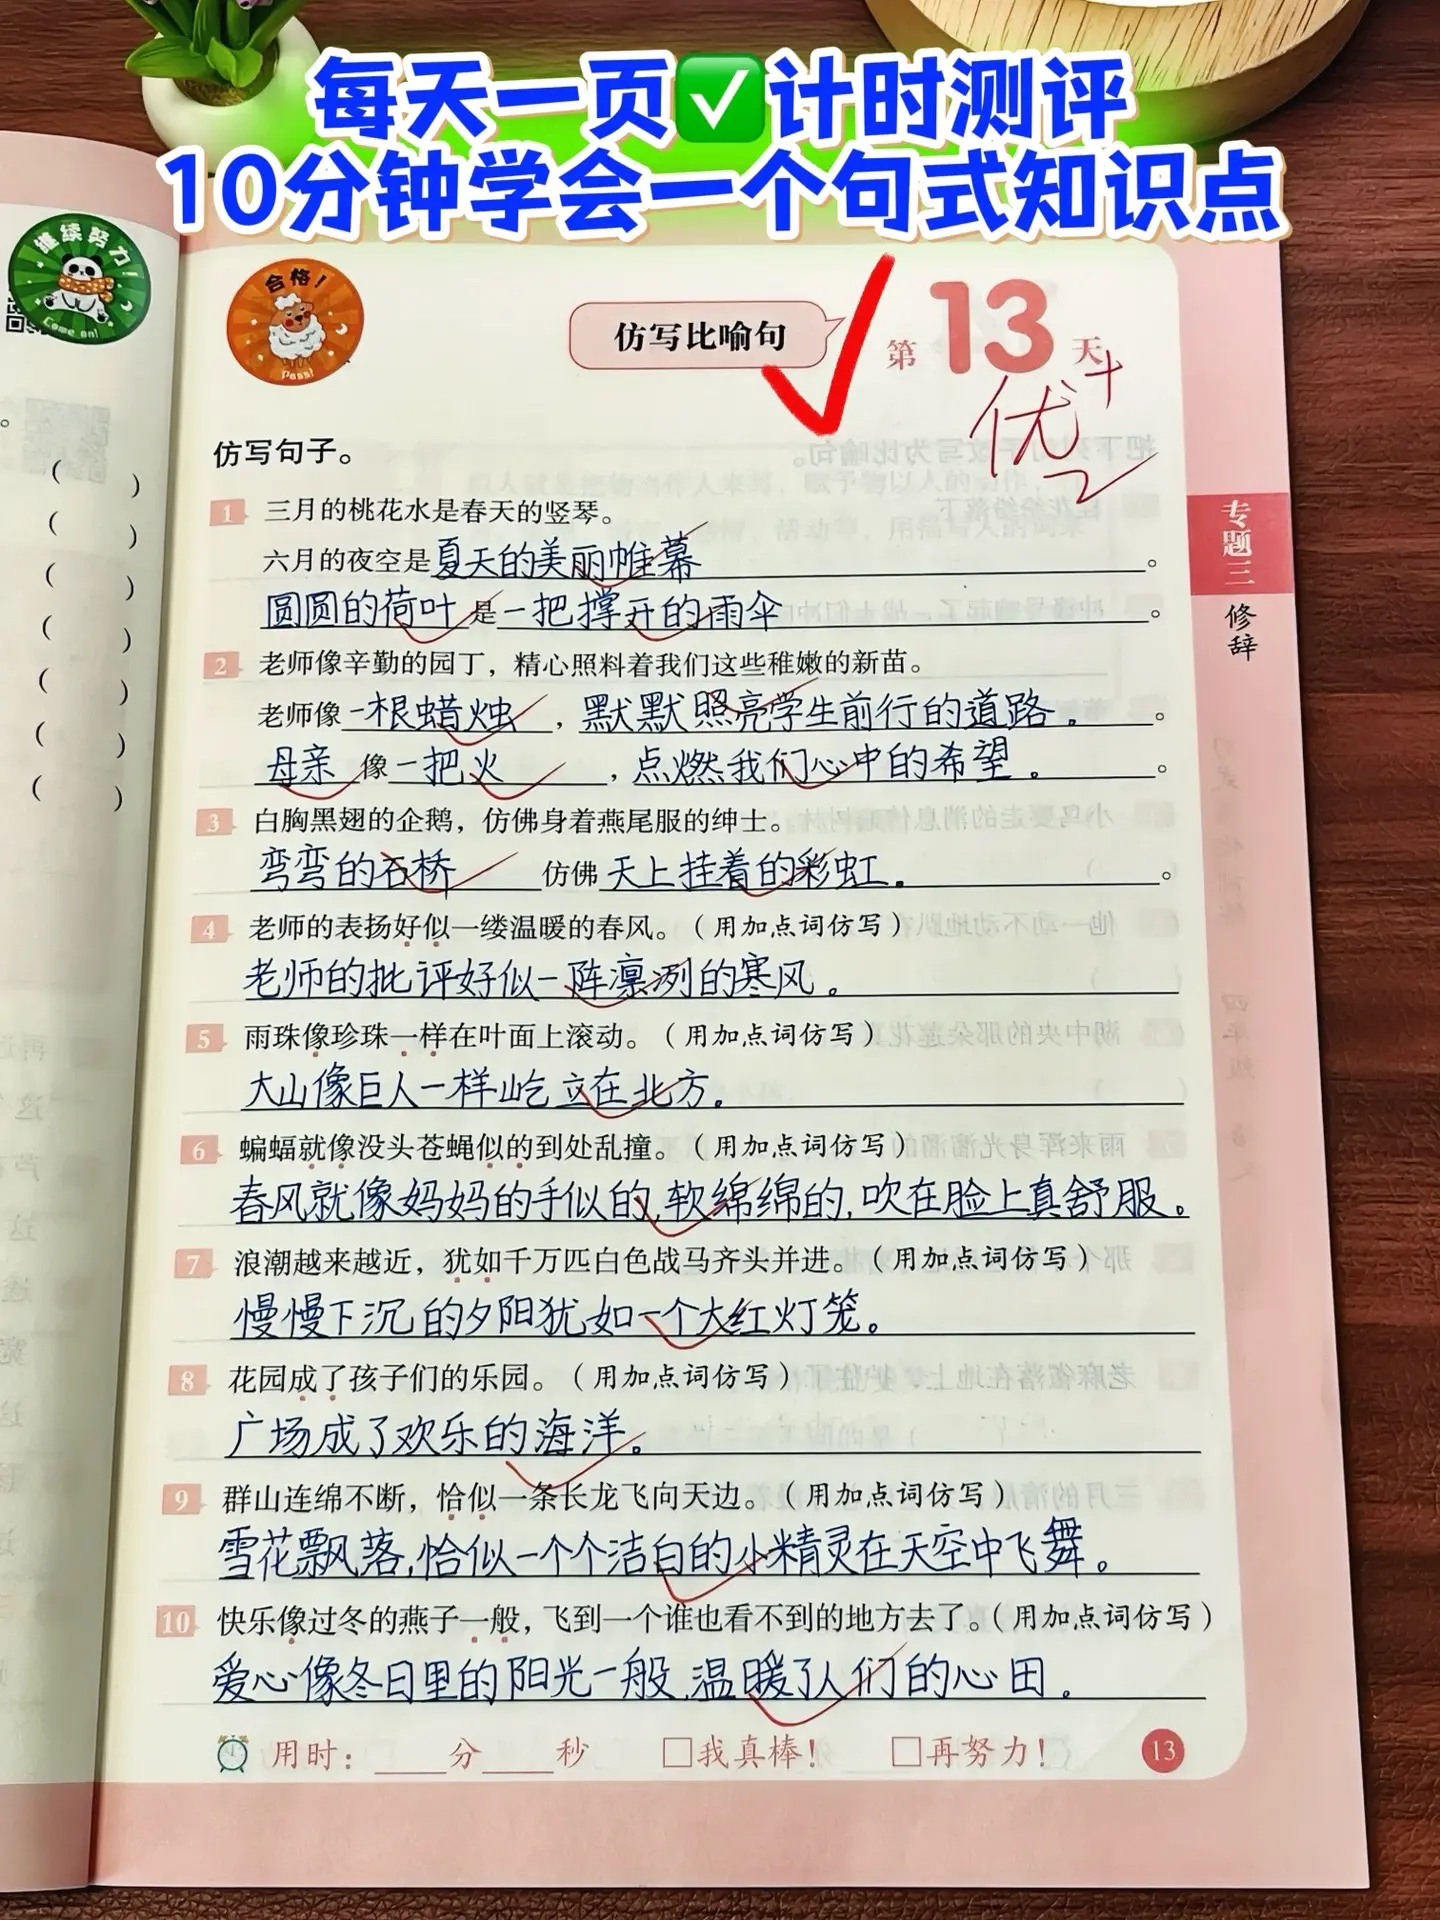 每天一页✅计时测评
10分钟学会一个句式知识点
继续努力!
Come on!
合格!
Pass!
仿写比喻句
第13天
优+
仿写句子。
1 三月的桃花水是春天的竖琴。
六月的夜空是夏天的美丽帷幕。
圆圆的荷叶是一把撑开的雨伞。
2 老师像辛勤的园丁，精心照料着我们这些稚嫩的新苗。
老师像一根蜡烛，默默照亮学生前行的道路。。
母亲像一把火，点燃我们心中的希望。。
3 白胸黑翅的企鹅，仿佛身着燕尾服的绅士。
弯弯的石桥仿佛天上挂着的彩虹。。
4 老师的表扬好似一缕温暖的春风。(用加点词仿写)
老师的批评好似一阵凛冽的寒风。
5 雨珠像珍珠一样在叶面上滚动。(用加点词仿写)
大山像巨人一样屹立在北方。
6 蝙蝠就像没头苍蝇似的到处乱撞。(用加点词仿写)
春风就像妈妈的手似的,软绵绵的,吹在脸上真舒服。
7 浪潮越来越近，犹如千万匹白色战马齐头并进。(用加点词仿写)
慢慢下沉的夕阳犹如一个大红灯笼。
8 花园成了孩子们的乐园。(用加点词仿写)
广场成了欢乐的海洋。
9 群山连绵不断，恰似一条长龙飞向天边。(用加点词仿写)
雪花飘落,恰似一个个洁白的小精灵在天空中飞舞。
10 快乐像过冬的燕子一般，飞到一个谁也看不到的地方去了。(用加点词仿写)
爱心像冬日里的阳光一般,温暖了人们的心田。
用时：____分____秒 □我真棒! □再努力!
13
专题三
修辞